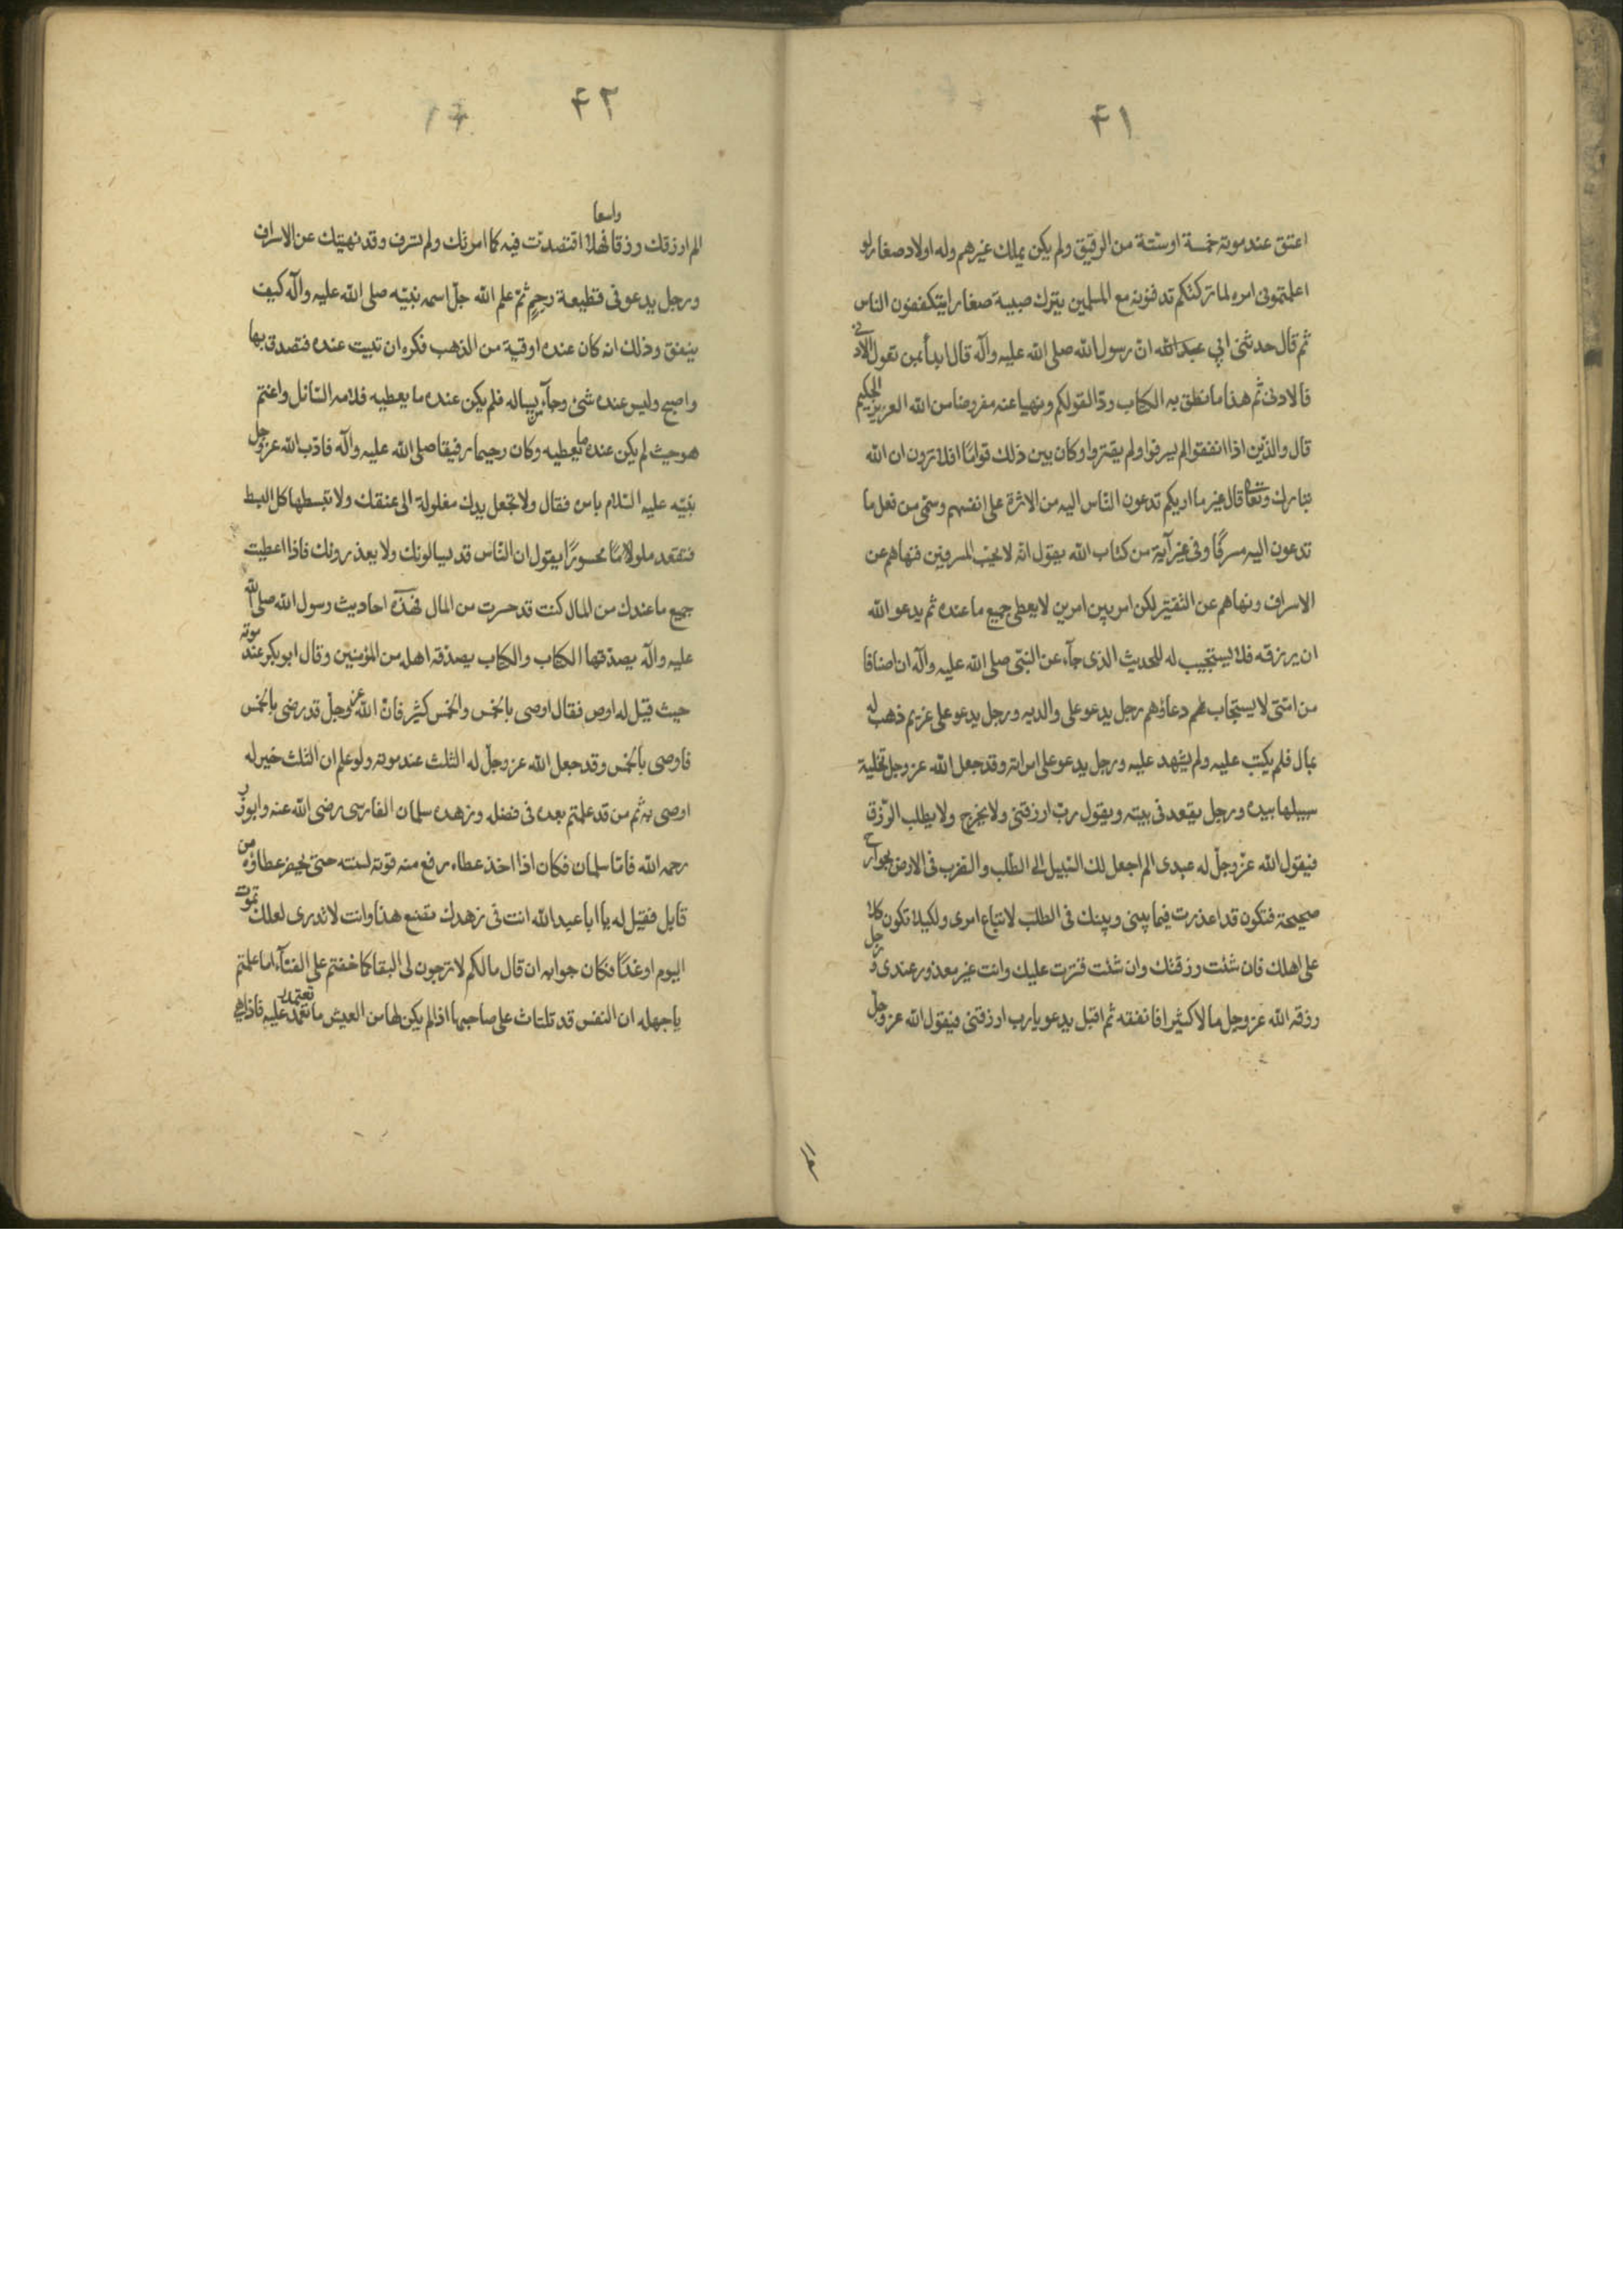 ۴۱
اعتق عند موته خمسة او ستة من الرقيق ولم يكن يملك غيرهم وله اولاد صغار لو
اعلمتموني امره لما تركتكم تدفنونه مع المسلمين يترك صبية صغارا يتكففون الناس
ثم قال حدثني ابي عبد الله ان رسول الله صلى الله عليه وآله قال ابدأ بمن تعول الادنى
فالادنى ثم هذا ما نطق به الكتاب ردّا لقولكم ونهيا عنه مفروضا من الله العزيز الحكيم
قال والذين اذا انفقوا لم يسرفوا ولم يقتروا وكان بين ذلك قوامًا افلا ترون ان الله
تبارك وتعالى قال غير ما اريكم تدعون الناس اليه من الاثرة على انفسهم وسمّى من فعل ما
تدعون اليه مسرفًا وفي غير آية من كتاب الله يقول انّه لا يحبّ المسرفين فنهاهم عن
الاسراف ونهاهم عن التقتير لكن امر بين امرين لا يعطى جميع ما عنده ثم يدعو الله
ان يرزقه فلا يستجيب له للحديث الذى جآء عن النبى صلى الله عليه وآله ان اصنافا
من امّتى لا يستجاب لهم دعاؤهم رجل يدعو على والديه ورجل يدعو على غريم ذهب له
بمال فلم يكتب عليه ولم يشهد عليه ورجل يدعو على امراته وقد جعل الله عز وجل تخلية
سبيلها بيده ورجل يقعد فى بيته ويقول ربّ ارزقنى ولا يخرج ولا يطلب الرّزق
فيقول الله عزّ وجلّ له عبدى الم اجعل لك السّبيل الى الطّلب والضّرب فى الارض بجوارح
صحيحة فتكون قد اعذرت فيما بينى وبينك فى الطلب لاتباع امرى ولكيلا تكون كلا
على اهلك فان شئت رزقتك وان شئت قترت عليك وانت غير معذور عندى و رجل
رزقه الله عز وجل مالا كثيرا فانفقه ثم اقبل يدعو يا رب ارزقنى فيقول الله عز وجلّ
الم
۴۲
الم ارزقك رزقا واسعا فهلّا اقتصدت فيه كما امرتك ولم تسرف وقد نهيتك عن الاسراف
ورجل يدعو فى قطيعة رحم ثمّ علم الله جلّ اسمه نبيّه صلى الله عليه وآله كيف
ينفق وذلك انه كان عنده اوقية من الذهب فكره ان تبيت عنده فتصدق بها
واصبح وليس عنده شئ وجآء من يساله فلم يكن عنده ما يعطيه فلامه السّائل واغتم
هو حيث لم يكن عنده ما يعطيه وكان رحيما رفيقا صلى الله عليه وآله فادّب الله عز وجل
نبيّه عليه السّلام بامره فقال ولا تجعل يدك مغلولة الى عنقك ولا تبسطها كل البسط
فتقعد ملومًا محسورًا يقول ان النّاس قد يسالونك ولا يعذرونك فاذا اعطيت
جميع ما عندك من المال كنت قد حسرت من المال فهذه احاديث رسول الله صلى الله
عليه وآله يصدّقها الكتاب والكتاب يصدّقه اهله من المؤمنين وقال ابو بكر عند موته
حيث قيل له اوص فقال اوصى بالخمس والخمس كثير فانّ الله عز وجلّ قد رضى بالخمس
فاوصى بالخمس وقد جعل الله عز وجلّ له الثلث عند موته ولو علم ان الثلث خير له
اوصى به ثم من قد علمتم بعده فى فضله وزهده سلمان الفارسى رضى الله عنه وابو ذر
رحمه الله فامّا سلمان فكان اذا اخذ عطاءه رفع منه قوته لسنته حتى يحضر عطاؤه من
قابل فقيل له يا ابا عبد الله انت فى زهدك تصنع هذا وانت لا تدرى لعلك تموت
اليوم او غدًا فكان جوابه ان قال ما لكم لا ترجون لى البقا كما خفتم على الفنآء اما علمتم
يا جهله ان النفس قد تلتاث على صاحبها اذا لم يكن لها من العيش ما تعتمد عليه فاذا هى